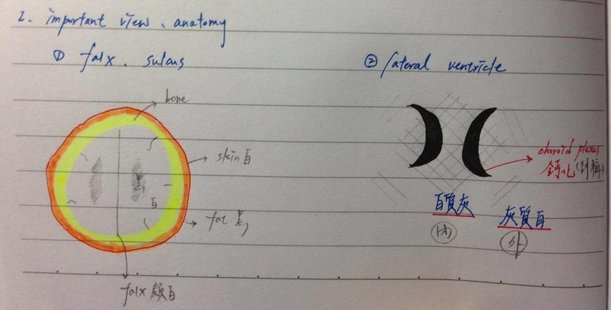 2. important view、anatomy
① falx、sulcus
② lateral ventricle
bone
skin 白
黑
白
fat 黑
falx 顯白
choroid plexus
鈣化(對稱)
白質灰
灰質白
內
外